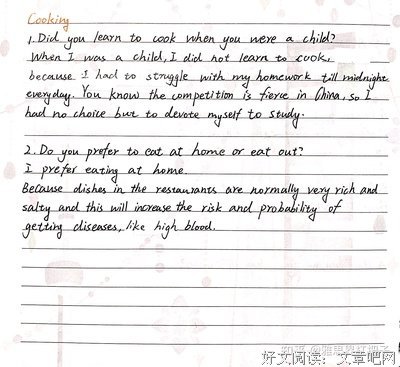 Cooking
1. Did you learn to cook when you were a child?
When I was a child, I did not learn to cook,
because I had to struggle with my homework till midnight
everyday. You know the competition is fierce in China, so I
had no choice but to devote myself to study.
2. Do you prefer to eat at home or eat out?
I prefer eating at home.
Because dishes in the restaurants are normally very rich and
salty and this will increase the risk and probability of
getting diseases, like high blood.
知乎
好文阅读：文章吧网